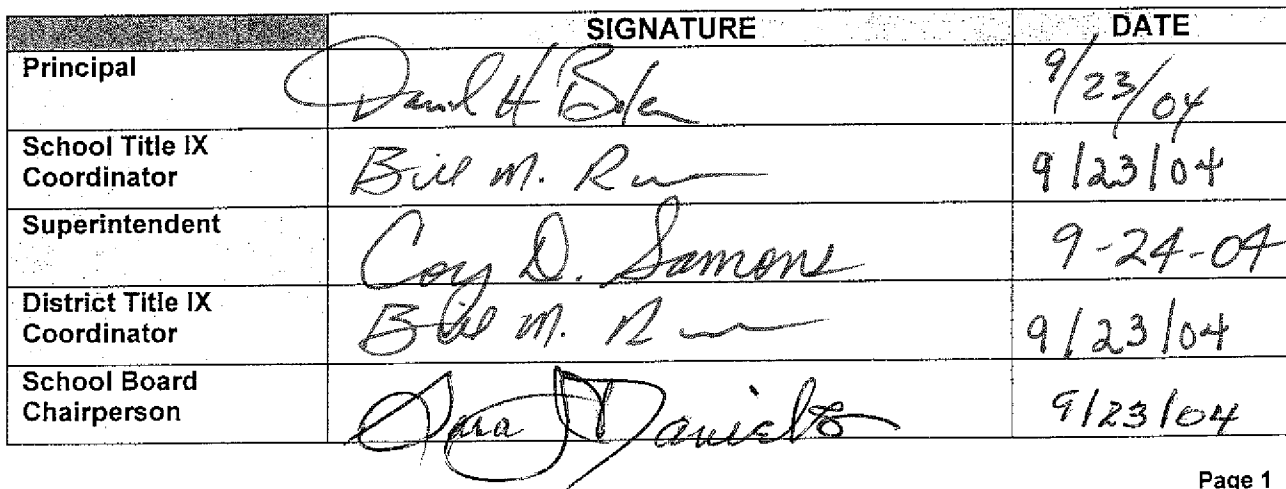 SIGNATURE DATE
Principal David H Bolen 9/23/04
School Title IX
Coordinator Bill M. 9/23/04
Superintendent Coy D. Samons 9-24-04
District Title IX
Coordinator Bill M. 9/23/04
School Board
Chairperson Daniels 9/23/04
Page 1